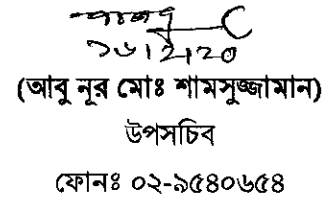 ১৬/২/২০
(আবু নূর মোঃ শামসুজ্জামান)
উপসচিব
ফোনঃ ০২-৯৫৪০৬৫৪